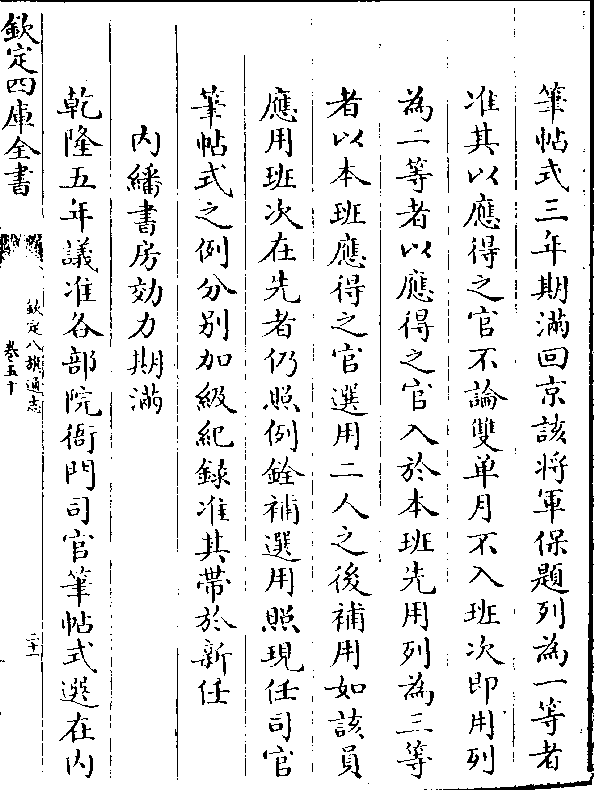 筆帖式三年期滿回京該將軍保題列為一等者
准其以應得之官不論雙单月不入班次即用列
為二等者以應得之官入於本班先用列為三等
者以本班應得之官選用二人之後補用如該員
應用班次在先者仍照例銓補選用照現任司官
筆帖式之例分别加級紀録准其帶於新任
内繙書房効力期滿
乾隆五年議准各部院衙門司官筆帖式選在内
欽定四庫全書
欽定八旗通志
卷五十
二十一